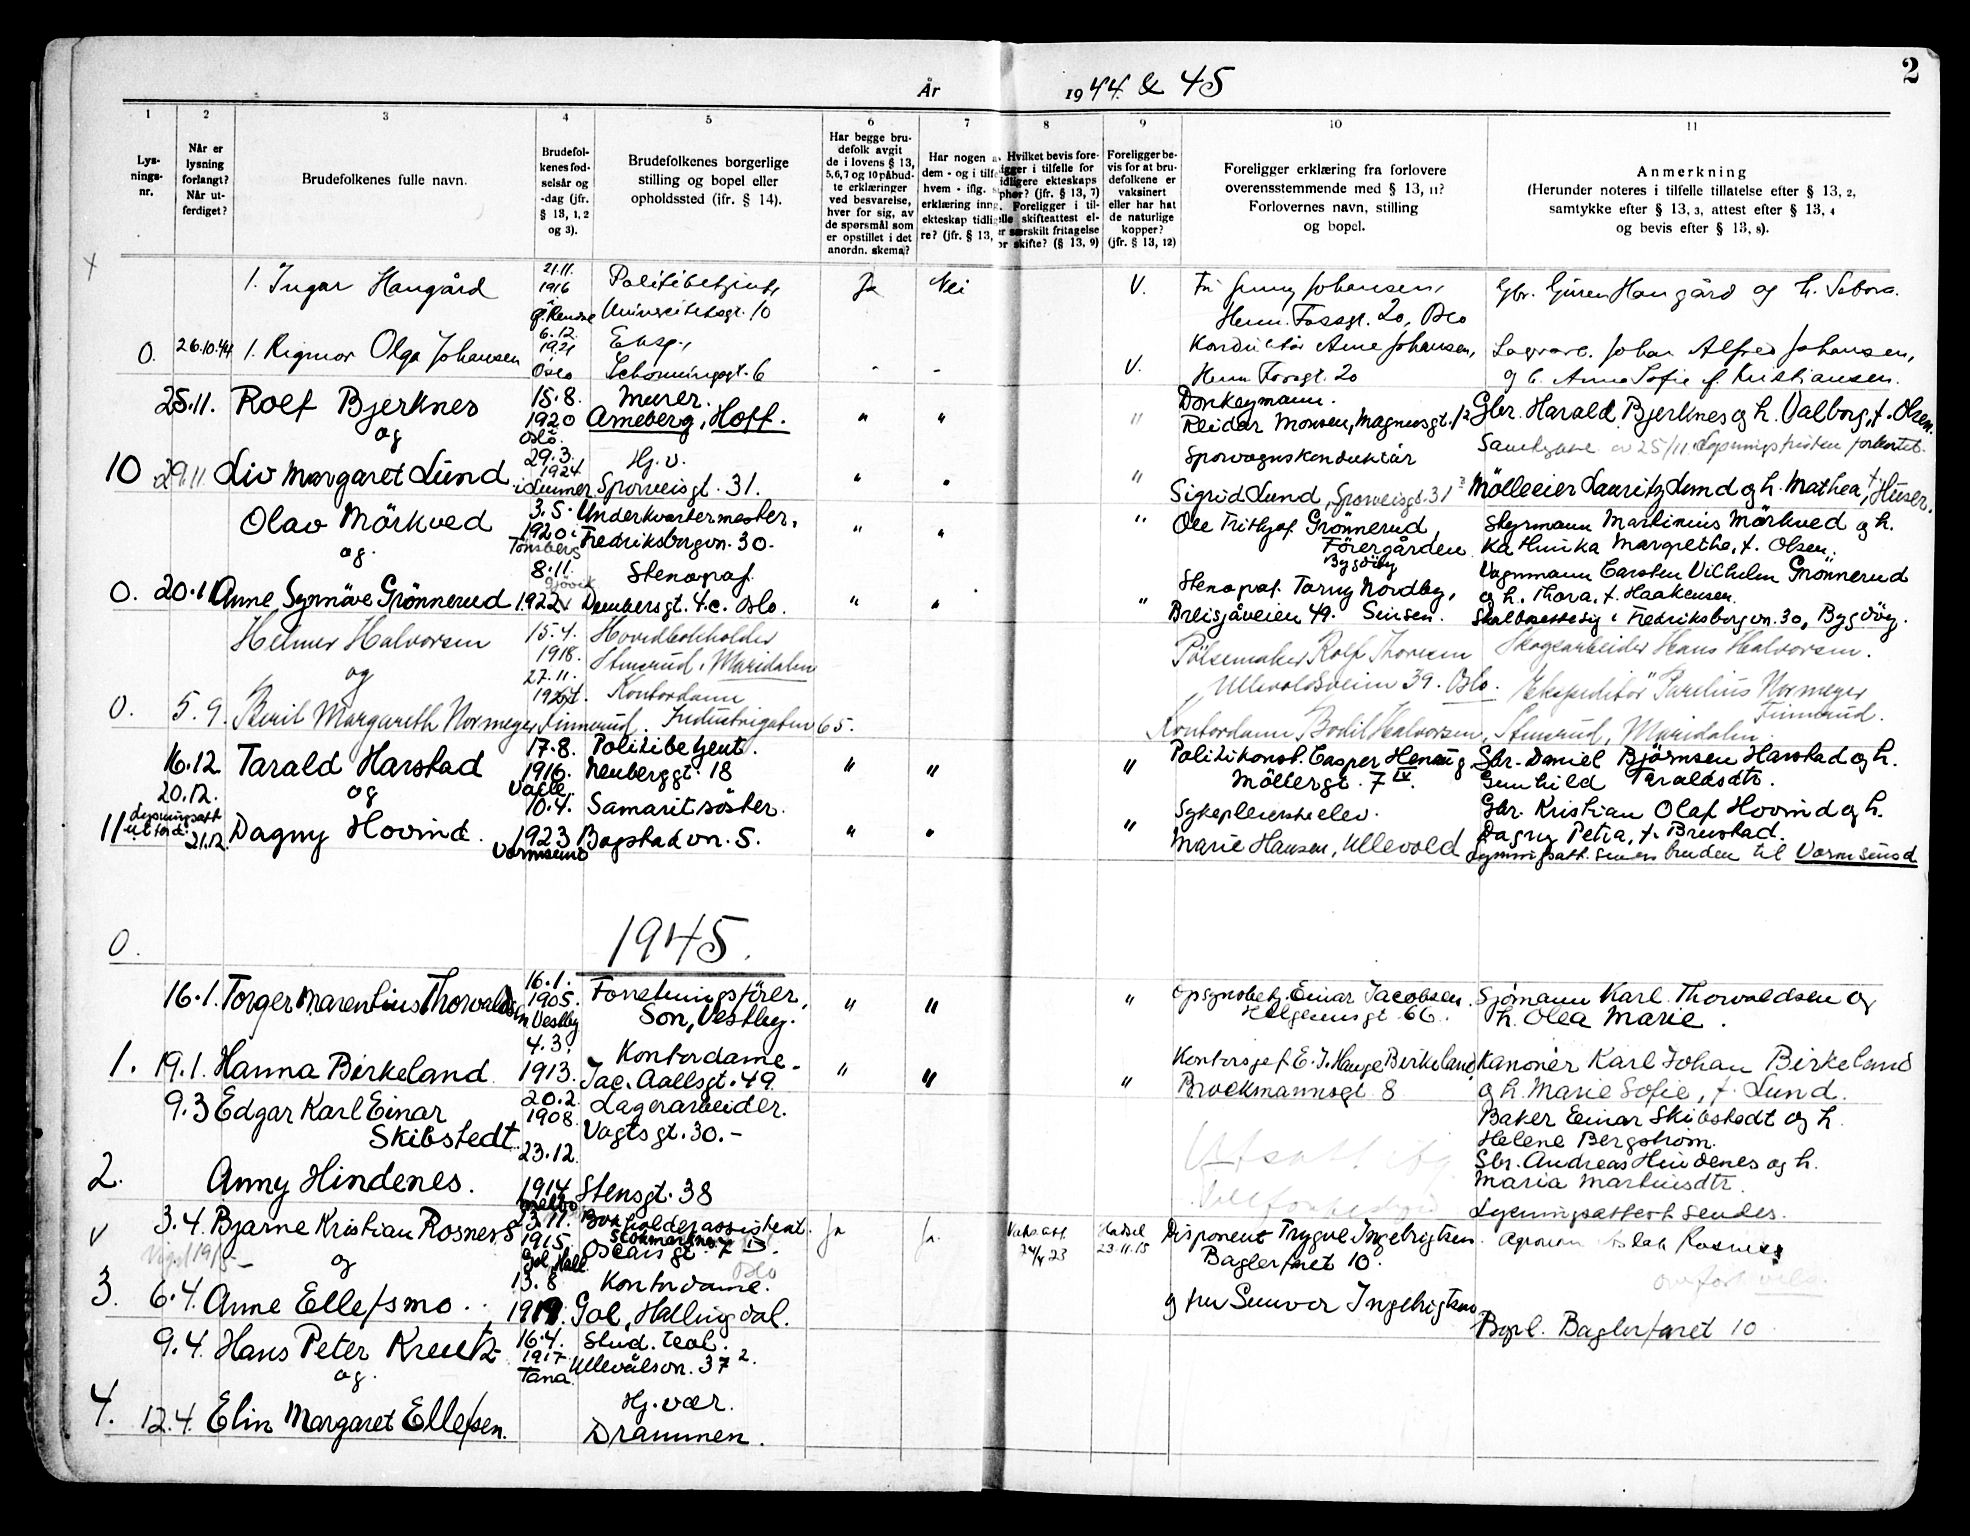 2
År
1944 & 45
1
2
3
4
5
6
7
8
9
10
11
Lys-
nings-
nr.
Når er
lysning
forlangt?
Når ut-
ferdiget?
Brudefolkenes fulle navn.
Brudefol-
kenes fød-
selsår og
-dag (jfr.
§ 13, 1, 2
og 3).
Brudefolkenes borgerlige
stilling og bopel eller
opholdssted (ifr. § 14).
Har begge bru-
defolk avgit
de i lovens § 13,
5, 6, 7 og 10 påbud-
te erklæringer
ved besvarelse,
hver for sig, av
de spørsmål som
er opstillet i det
anordn. skema?
Har nogen a
dem - og i tilf
hvem - iflg.
erklæring inng.
ekteskap tidli
re? (jfr. § 13,
Hvilket bevis fore-
ligger i tilfelle for
idligere ekteskaps
phør? (jfr. § 13, 7)
Foreligger i til-
lle skifteattest el-
er særskilt fritagelse
or skifte? (§ 13, 9)
Foreligger be-
vis for at bru-
defolkene er
vaksinert
eller har hat
de naturlige
kopper?
(jfr. § 13, 12)
Foreligger erklæring fra forlovere
overensstemmende med § 13, 11?
Forlovernes navn, stilling
og bopel.
Anmerkning
(Herunder noteres i tilfelle tillatelse efter § 13, 2,
samtykke efter § 13, 3, attest efter § 13, 4
og bevis efter § 13, 8).
1. Ingar Haugård
21.11.
1916
Politibetjent,
Universitetsgt. 10
Ja
Nei
V.
Fr. Jenny Johansen,
Herm. Fossgt. 20, Oslo
Gbr. Haugård og h.
0. 26.10.44 1. Rigmor Olga Johansen
6.12.
1921
Oslo
Eksp.,
Schønningsgt. 6
V.
Konduktør Arne Johansen,
Herm Fossgt. 20
Lagerarb. Johan Alfred Johansen,
og h. Anna Sofie f. Kristiansen.
25.11. Rolf Bjerknes
og
15.8.
1920
Oslo.
Murer.
Arneberg, Hoff.
" "
"
Donkeymann.
Reidar Monsen, Magnusgt. 12
Gbr. Harald Bjerknes og h. Valborg, f. Olsen.
Samtykke av 25/11 Lysningsfristen forkortet.
10 29.11. Liv Margaret Lund
29.3.
1924
Hj. v.
Sporveisgt. 31.
" "
"
Sporvognskonduktør
Sigrid Lund, Sporveisgt. 31
Mølleeier Lauritz Lund og h. Mathea, f. Huser.
Olav Mörkved
og.
3.5.
1920 i
Tønsberg
Underkvartermester,
Fredriksborgvn. 30.
" "
"
Ole Frithjof Grönnerud
Förergården
Bygdöy
Styrmann Martinius Mörkved og h.
Kathinka Margrethe, f. Olsen.
0. 20.11 Anne Synnöve Grönnerud
8.11.
Gjövik
1922
Stenograf
Dambersgt. 4.c. Oslo.
" "
"
Stenograf. Torny Nordby,
Breisjåveien 49. Sinsen.
Vognmann Carsten Vilhelm Grönnerud
og h. Thora. f. Haakensen.
Skal bosette sig i Fredriksborgvn. 30, Bygdöy.
Helmer Halvorsen
og
15.4.
1918.
Hovedbokholder
Stenrud, Maridalen
Pølsemaker Rolf Thoresen
Ullevoldsveien 39. Oslo.
Skogsarbeider Hans Halvorsen.
0. 5.9. Beril Margareth Normeyer
27.11.
Finnerud.
Kontordame
Industrigaten 65.
Kontordame, Bodil Halvorsen, Stenrud, Maridalen
Ekspeditør Parelius Normeyer
Finnerud.
16.12. Tarald Harstad
og
17.8.
1916.
Valle
Politibetjent.
Neuberggt. 18
" "
"
Politikonst. Casper Henaug
Möllergt. 7 IV
Gbr. Daniel Björnsen Harstad og h.
Gunhild Taraldsdtr.
20.12.
11 Lysningsatt. 21.12. Dagny Hovind.
10.4.
1923
Vormsund
Samaritsöster.
Bogstadvn. 5.
" "
"
Sykepleierskeelev.
Marie Hansen, Ullevold
Gbr. Kristian Olaf Hovind og h.
Dagny Petra, f. Brustad.
Lysningsatt. sendes bruden til Vormsund
0.
1945.
16.1. Torger Marentius Thorvaldsen
16.1.
1905.
Vestby
Forretningsfører,
Son, Vestby.
" "
"
Opsynsbetj. Einar Jacobsen.
Helgesensgt. 66.
Sjømann Karl Thorvaldsen og
h. Olea Marie.
1. 19.1. Hanna Birkeland
4.3.
1913.
Kontordame
Jac. Aallsgt. 49.
" "
"
Kontorsjef E. J. Hauge Birkeland
Brockmannsgt. 8
Kanonér Karl Johan Birkeland
og h. Marie Sofie, f. Lund.
9.3 Edgar Karl Einar
Skibstedt
20.2
1908.
Lagerarbeider.
Vogtsgt. 30.-
Utsatt
Baker Einar Skibstedt og h.
Helene Bergstrøm.
2. Anny Hindenes.
23.12.
1914
Melbo
Stensgt. 38
Gbr. Andreas Hindenes og h.
Maria Martinsdtr.
Lysningsattest sendes.
v 3.4. Bjarne Kristian Rosnes
og
23.11.
1915.
Bokholderassistent.
Stokmarknes
Oscarsgt. 7
Ja
Vaks. att.
24/4 23
Hadsel
23.11.15
Disponent Trygve Ingebrigtsen
Baglerfaret 10.
Agronom Aslak Rosnes
3. 6.4. Anne Ellefsmo.
13.8
1919.
Kontordame.
Gol, Hallingdal.
og fru Sunver Ingebrigtsen
Bopl. Baglerfaret 10
9.4. Hans Peter Kreutz
og.
16.4.
1917
Tana
Stud. teol.
Ullevålsvn. 37 2.
4. 12.4. Elin Margaret Ellefsen.
Hj. vær.
Drammen.